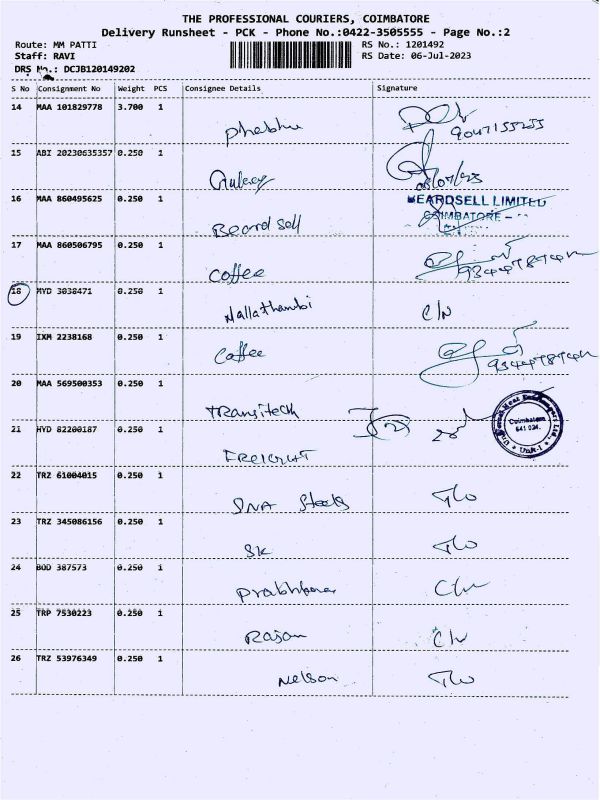 THE PROFESSIONAL COURIERS, COIMBATORE
Delivery Runsheet - PCK - Phone No.:0422-3505555 - Page No.:2
Route: MM PATTI RS No.: 1201492
Staff: RAVI RS Date: 06-Jul-2023
DRS No.: DCJB120149202
S No Consignment No Weight PCS Consignee Details Signature
14 MAA 101829778 3.700 1
15 ABI 20230635357 0.250 1
16 MAA 860495625 0.250 1
BEARDSELL LIMITED
COIMBATORE -
Beardsell
17 MAA 860506795 0.250 1
Coffee
18 HYD 3038471 0.250 1
Nallathambi C/N
19 IXM 2238168 0.250 1
Coffee
20 MAA 569500353 0.250 1
Transitech
21 HYD 82200187 0.250 1
Coimbatore
641 024.
Unit-I
22 TRZ 61004015 0.250 1
SNA Steels
23 TRZ 345086156 0.250 1
SK
24 BOD 387573 0.250 1
Prabhakar
25 TRP 7530223 0.250 1
Rajan
26 TRZ 53976349 0.250 1
Nelson